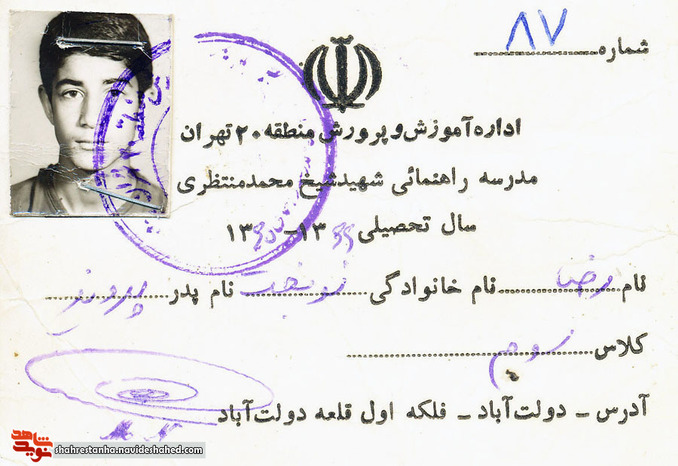 شماره ۸۷
اداره آموزش و پرورش منطقه ۲۰ تهران
مدرسه راهنمائی شهید شیخ محمد منتظری
سال تحصیلی ۱۳ - ۱۳
نام رضا نام خانوادگی نوبخت نام پدر پرویز
کلاس سوم
آدرس ـ دولت‌آباد ـ فلکه اول قلعه دولت‌آباد
نوید شاهد
shahrestanha.navideshahed.com